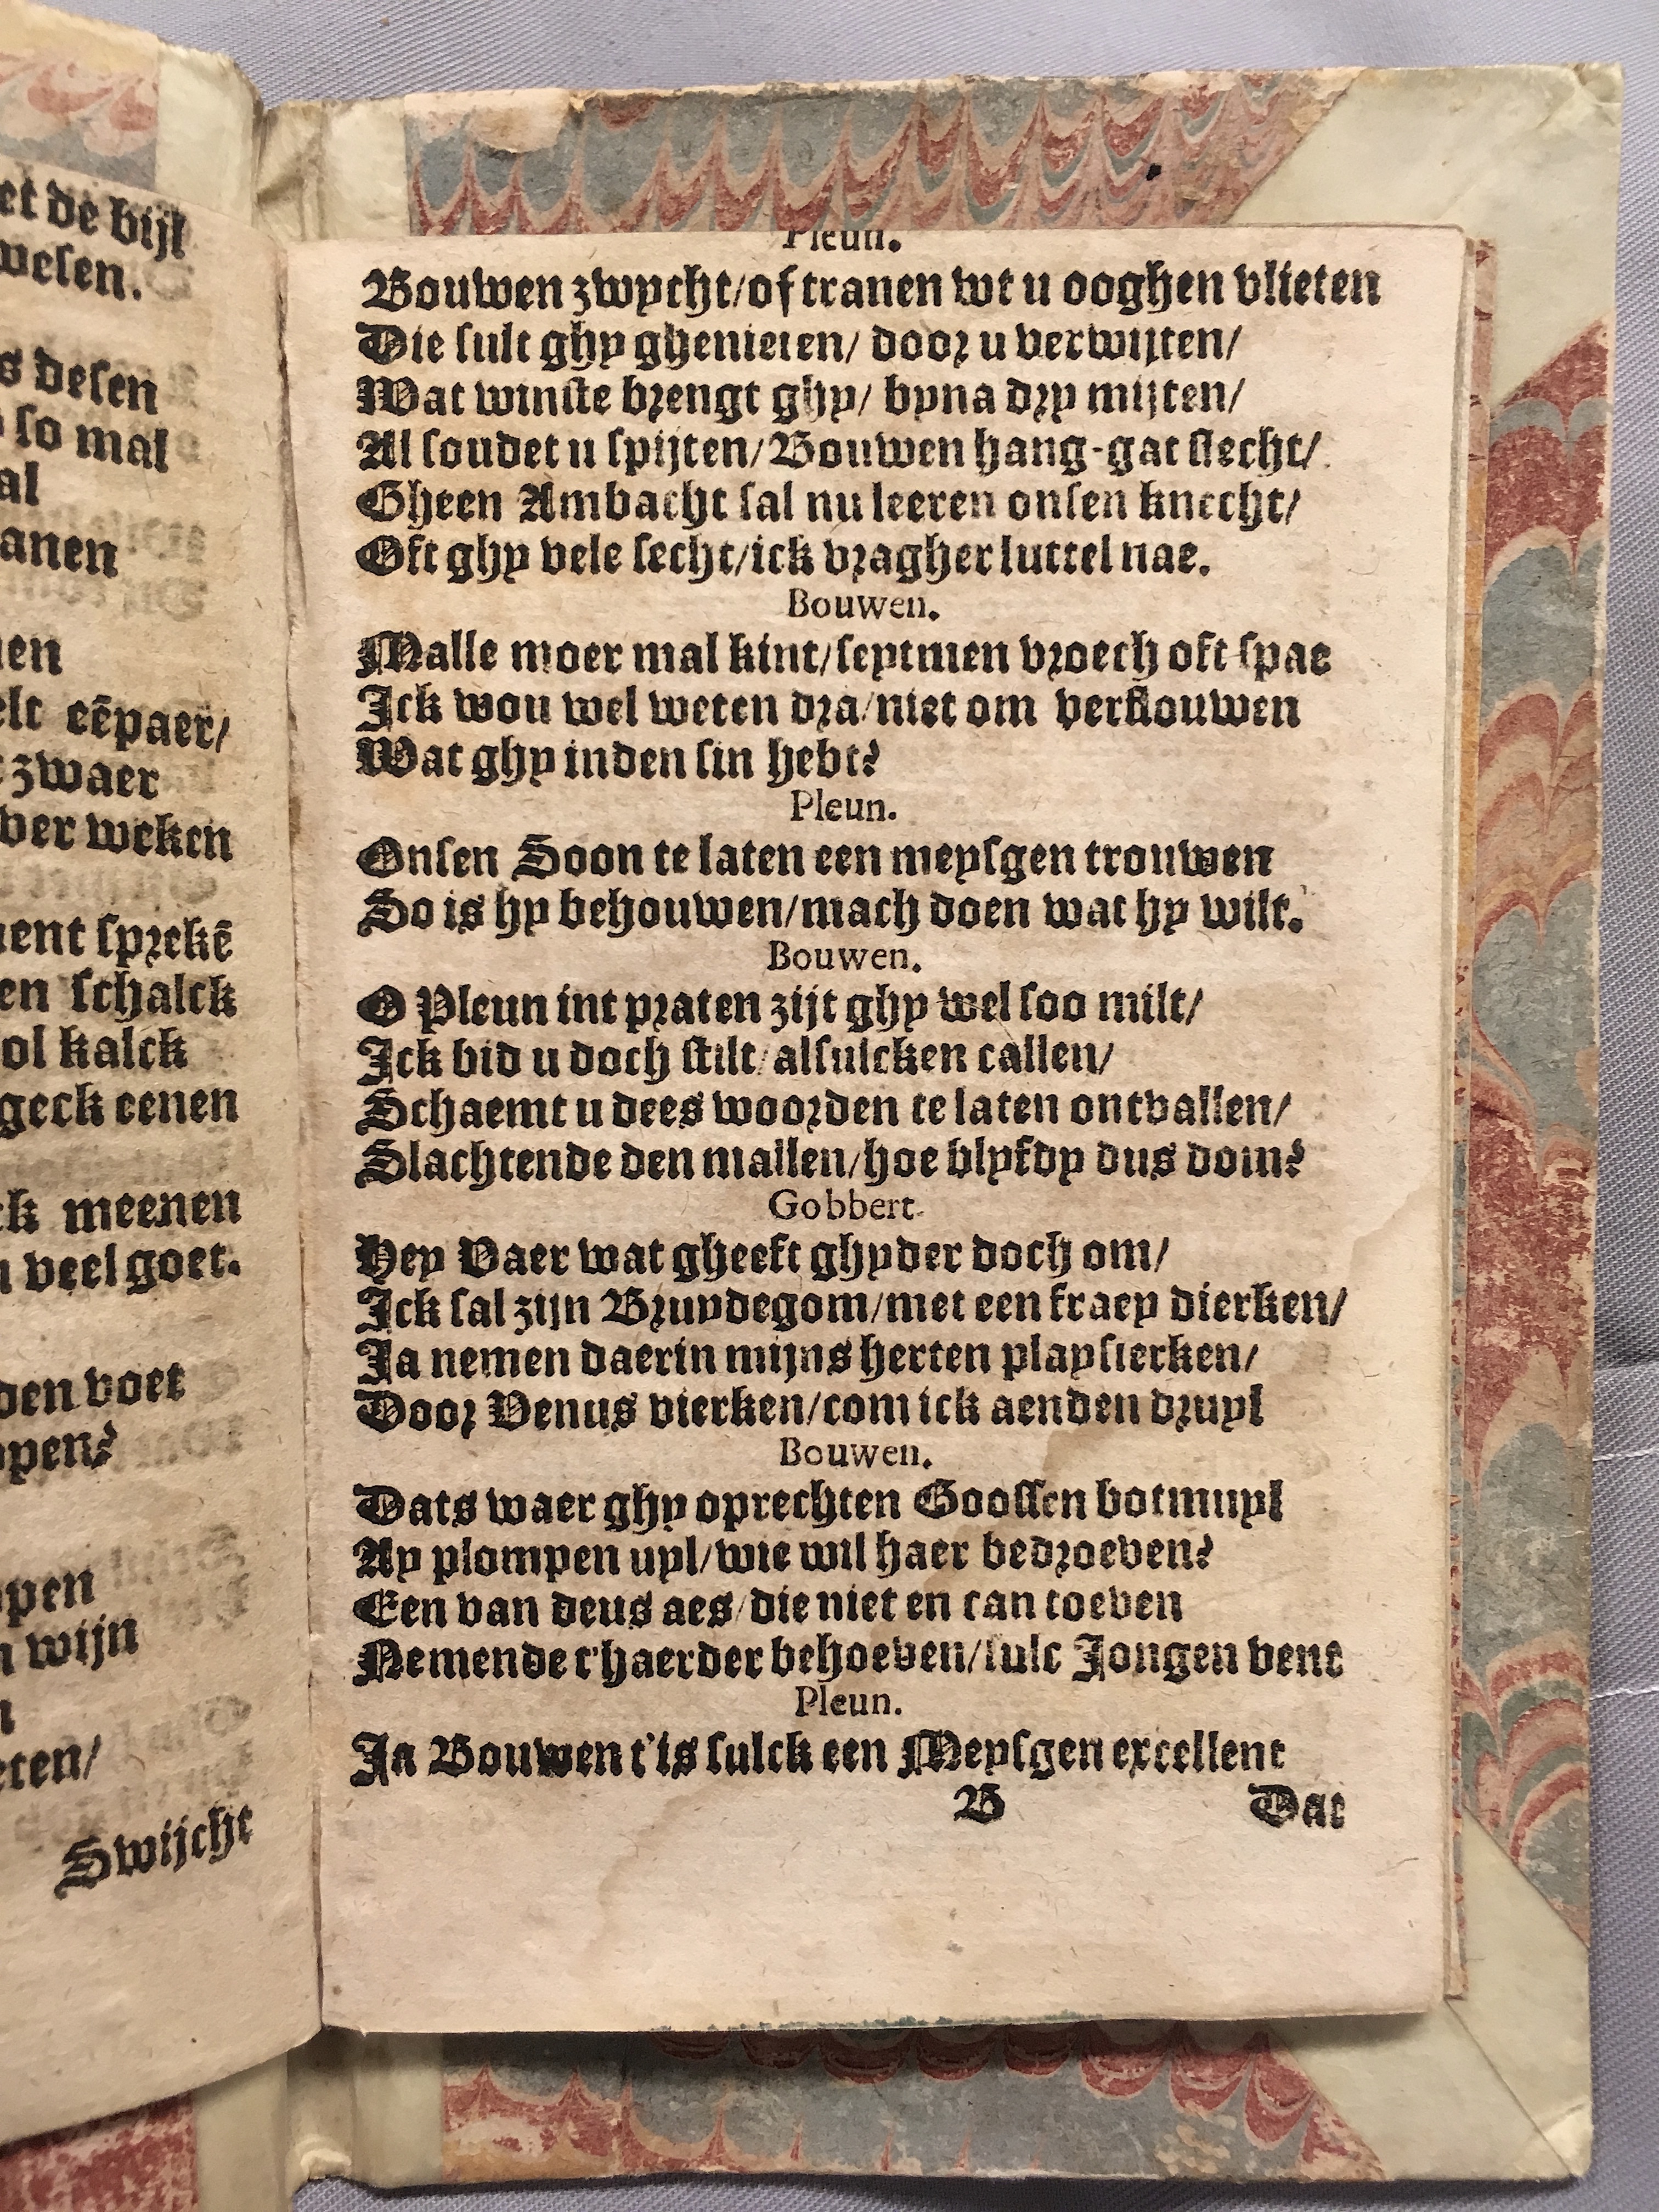 et de bijl
wesen.
s desen
so mal
al
anen
en
elt eēpaer/
zwaer
ver weken
ent sprekē
en schalck
ol kalck
geck eenen
ck meenen
veel goet.
den voet
open?
open
wijn
eten/
Swijcht
Pleun.
Bouwen zwycht/of tranen wt u ooghen vlieten
Die sult ghy ghenieten/ door u verwijten/
Wat winste brengt ghy/ byna dry mijten/
Al soudet u spijten/Bouwen hang-gat slecht/
Gheen Ambacht sal nu leeren onsen knecht/
Oft ghy vele secht/ick vragher luttel nae.
Bouwen.
Malle moer mal kint/seytmen vroech oft spae
Ick wou wel weten dra/niet om verflouwen
Wat ghy inden sin hebt?
Pleun.
Onsen Soon te laten een meysgen trouwen
So is hy behouwen/mach doen wat hy wilt.
Bouwen.
O Pleun int praten zijt ghy wel soo milt/
Ick bid u doch stilt/alsulcken callen/
Schaemt u dees woorden te laten ontvallen/
Slachtende den mallen/hoe blyfdy dus dom?
Gobbert.
Hey Vaer wat gheeft ghyder doch om/
Ick sal zijn Bruydegom/met een fraey dierken/
Ja nemen daerin mijns herten playsierken/
Door Venus vierken/com ick aenden druyl
Bouwen.
Dats waer ghy oprechten Goossen botmuyl
Ay plompen uyl/wie wil haer bedroeven?
Een van deus aes/die niet en can toeven
Nemende t'haerder behoeven/sulc Jongen vent
Pleun.
Ja Bouwen t'is sulck een Meysgen excellent
B Dat